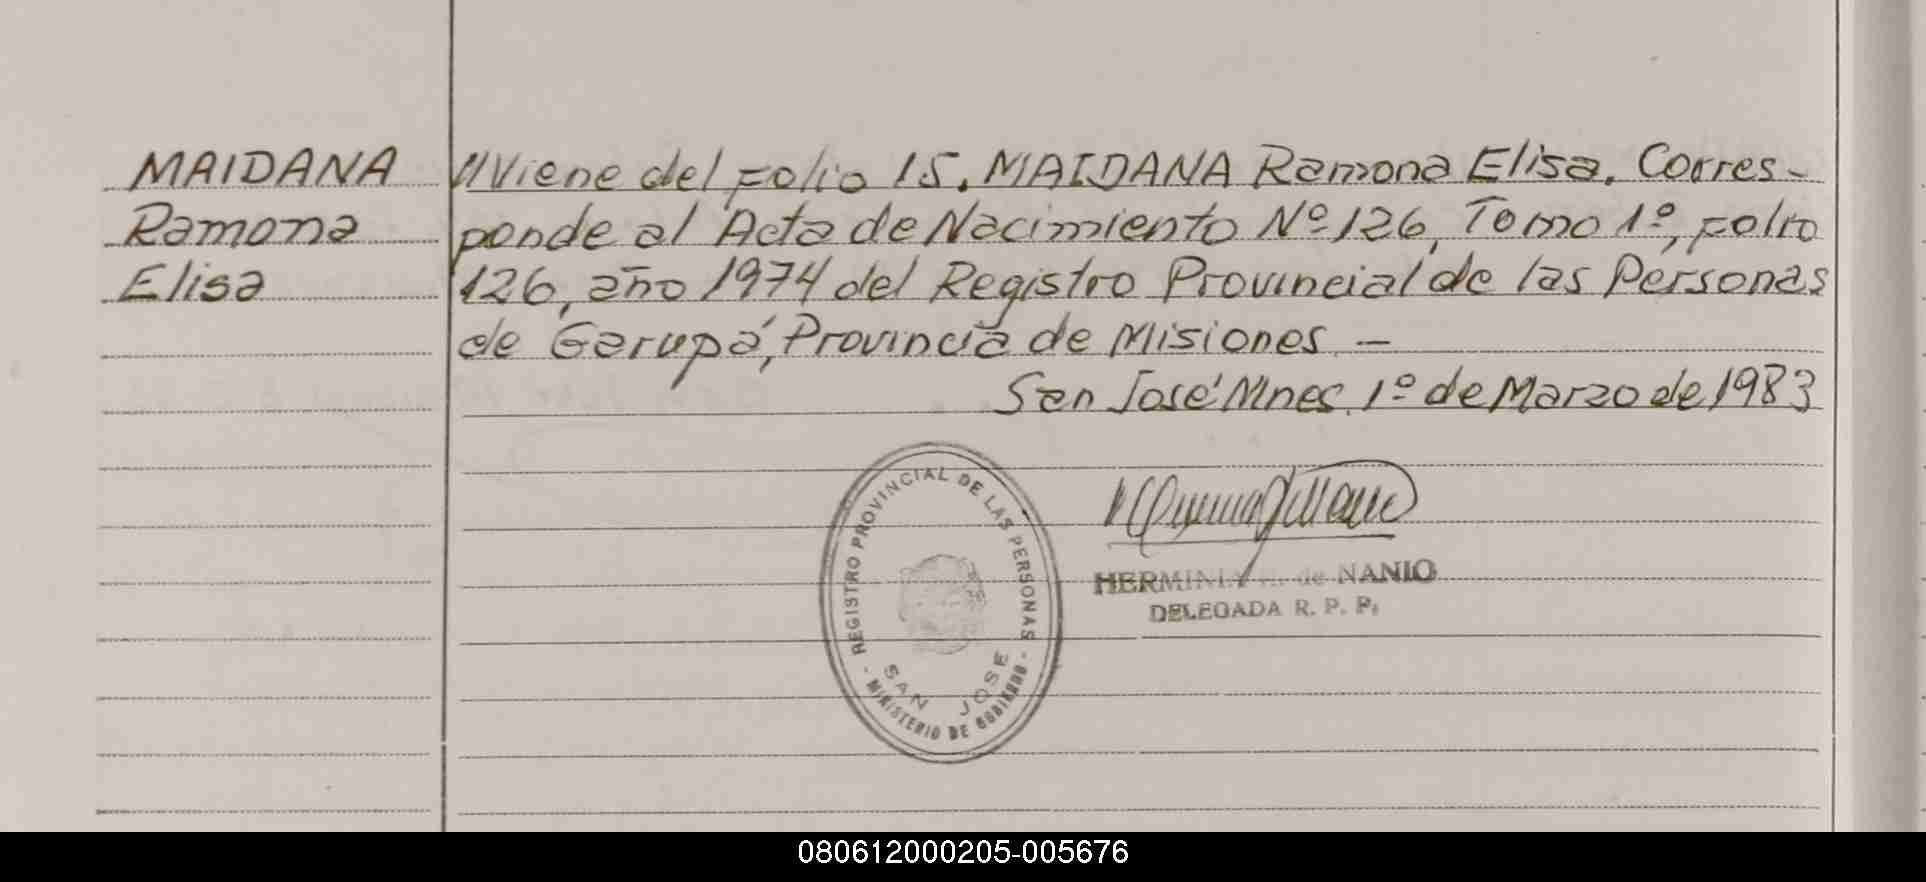 MAIDANA
Ramona
Elisa
//Viene del Folio 15. MAIDANA Ramona Elisa. Corres-
ponde al Acta de Nacimiento Nº 126, Tomo 1º, Folio
126, año 1974 del Registro Provincial de las Personas
de Garupá, Provincia de Misiones. —
San José Mnes. 1º de Marzo de 1983
REGISTRO PROVINCIAL DE LAS PERSONAS
SAN JOSE
- MINISTERIO DE GOBIERNO -
HERMINIA de NANIO
DELEGADA R. P. P.
080612000205-005676